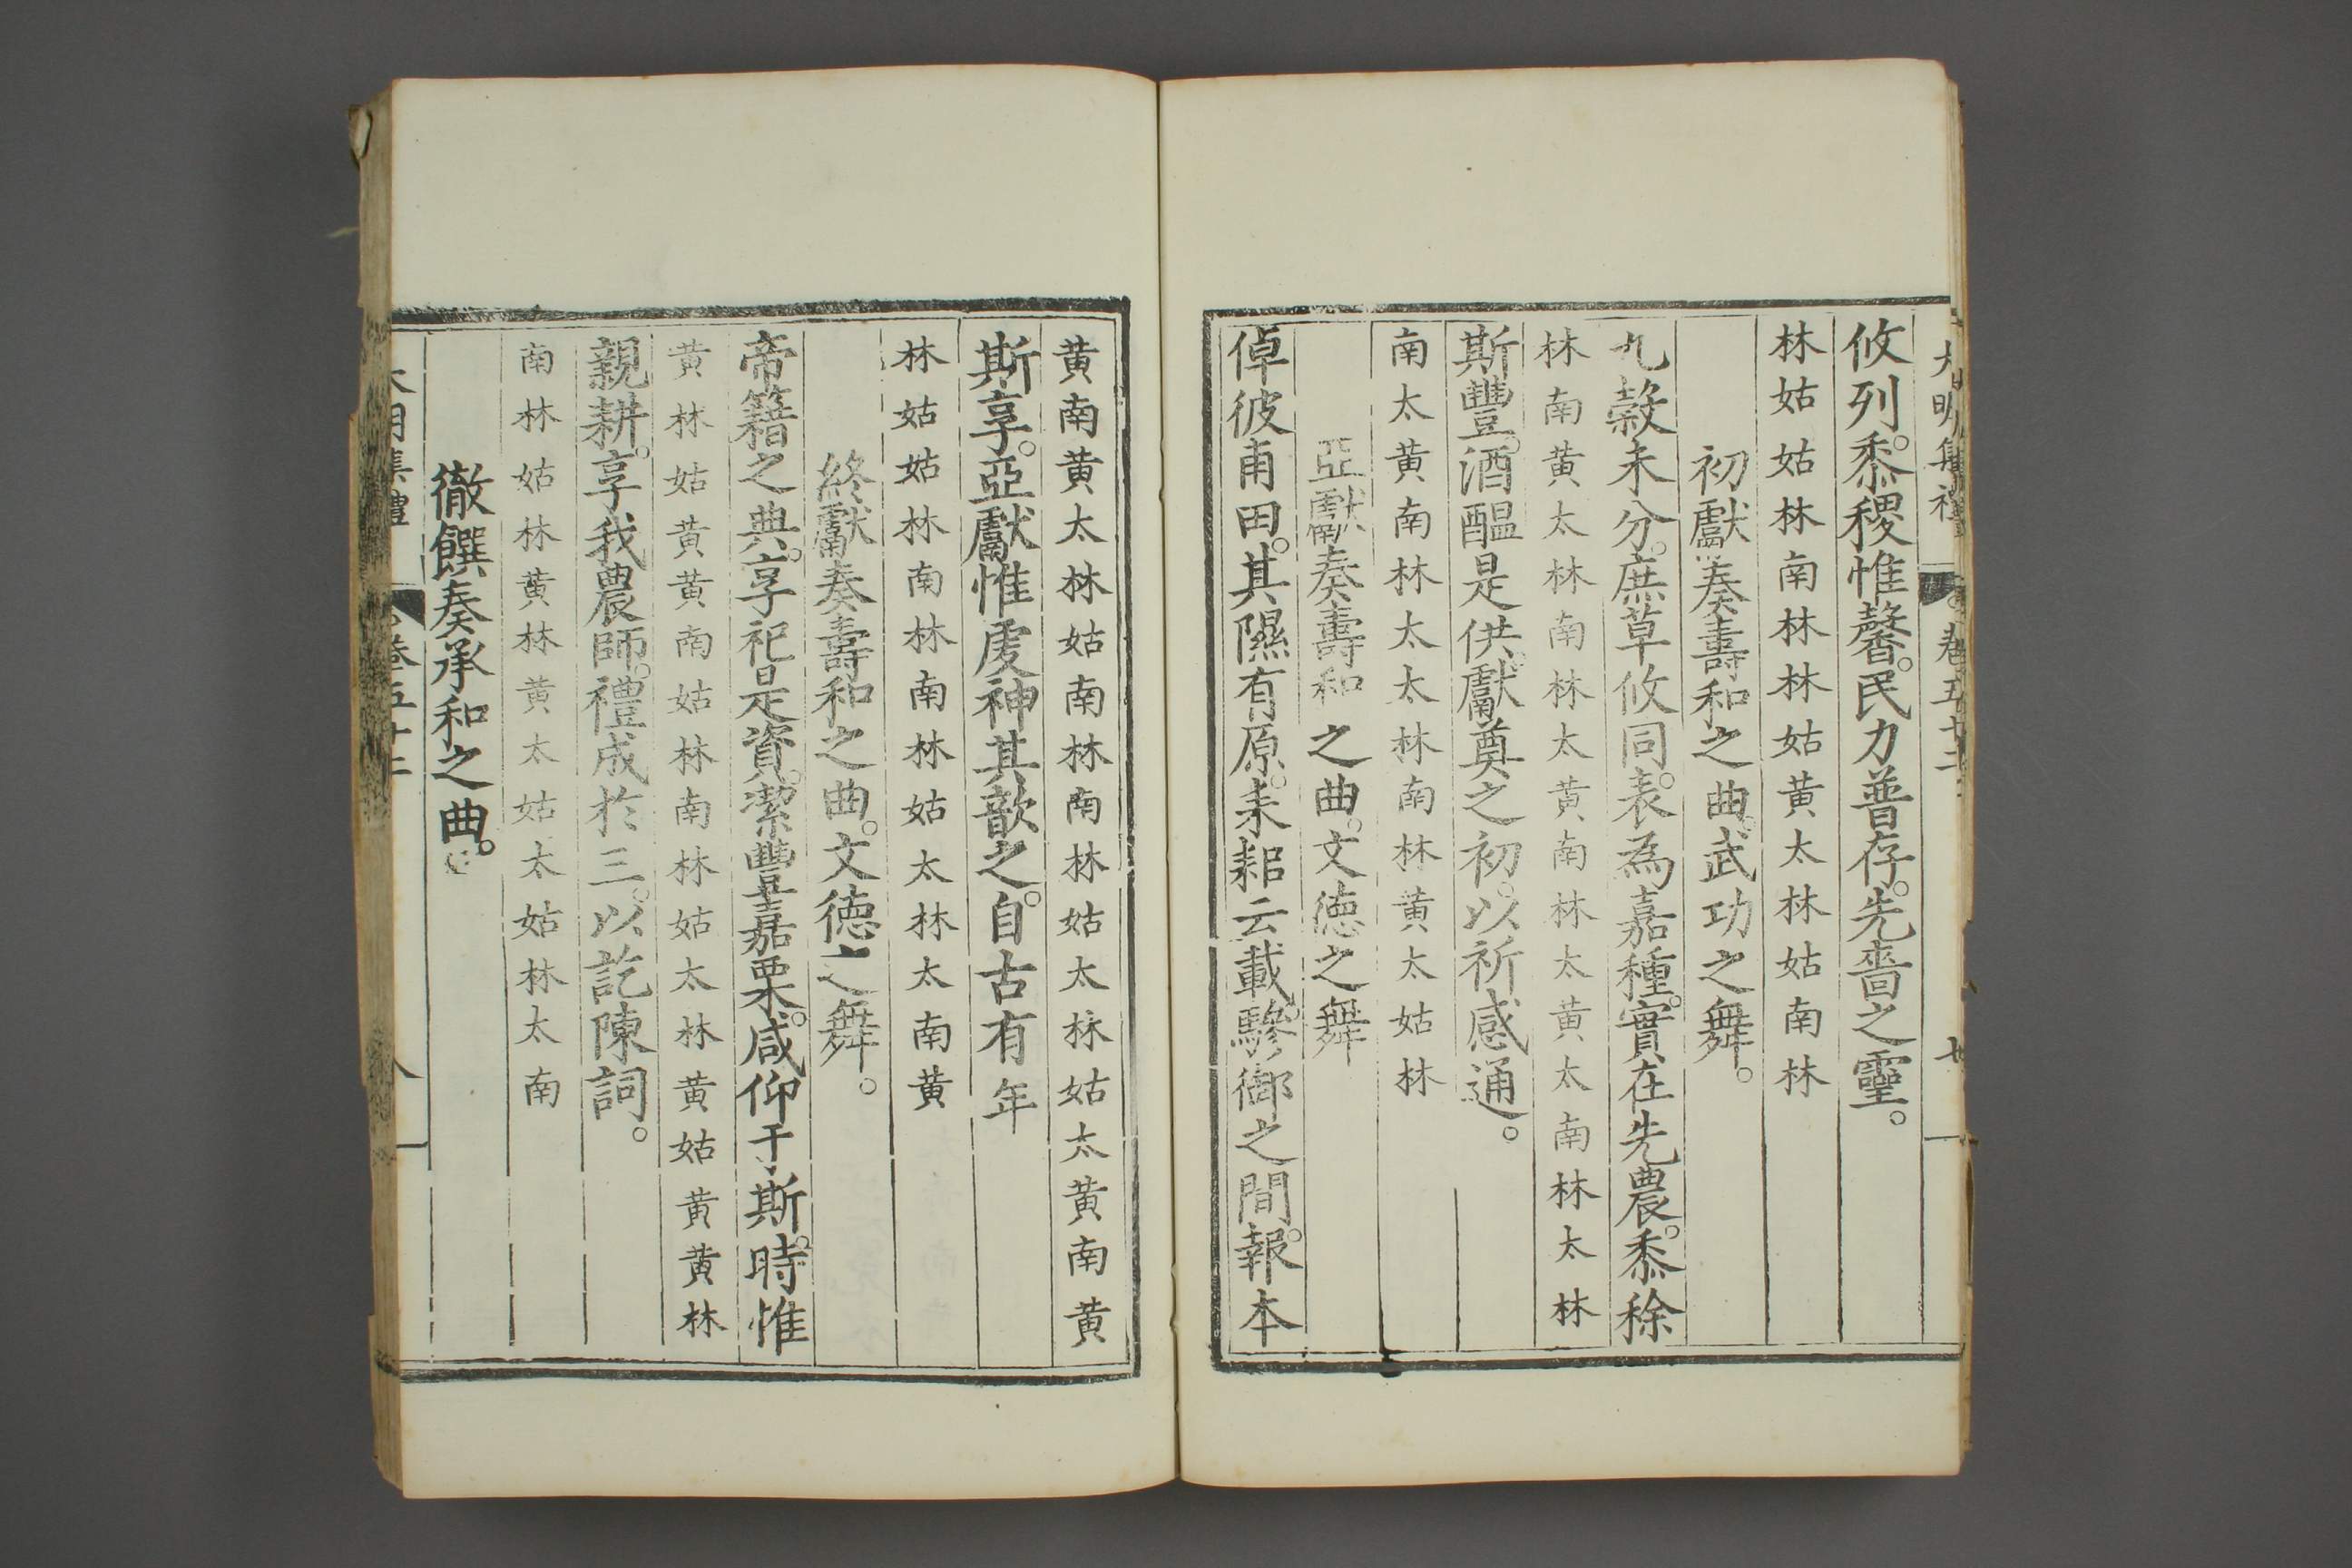 大明集禮 卷五十二 七
攸列。黍稷惟馨。民力普存。先嗇之靈。
林姑姑林南林林姑黄太林姑南林
初獻奏壽和之曲。武功之舞。
九穀未分。庶草攸同。表為嘉種。實在先農。黍稌
林南黄太林南林太黄南林太黄太南林太林
斯豐。酒醖是供。獻奠之初。以祈感通。
南太黄南林太太林南林黄太姑林
亞獻奏壽和之曲。文德之舞
倬彼甫田。其隰有原。耒耜云載。驂御之間。報本
黄南黄太林姑南林南林姑太林姑太黄南黄
斯享。亞獻惟虔神其歆之。自古有年
林姑姑林南林南林姑太林太南黄
終獻奏壽和之曲。文德之舞。
帝籍之典。享祀是資。潔豐嘉栗。咸仰于斯。時惟
黄林姑黄黄南姑林南林姑太林黄姑黄黄林
親耕。享我農師。禮成於三。以訖陳詞。
南林姑林黄林黄太姑太姑林太南
徹饌奏承和之曲。
大明集禮 卷五十二 八